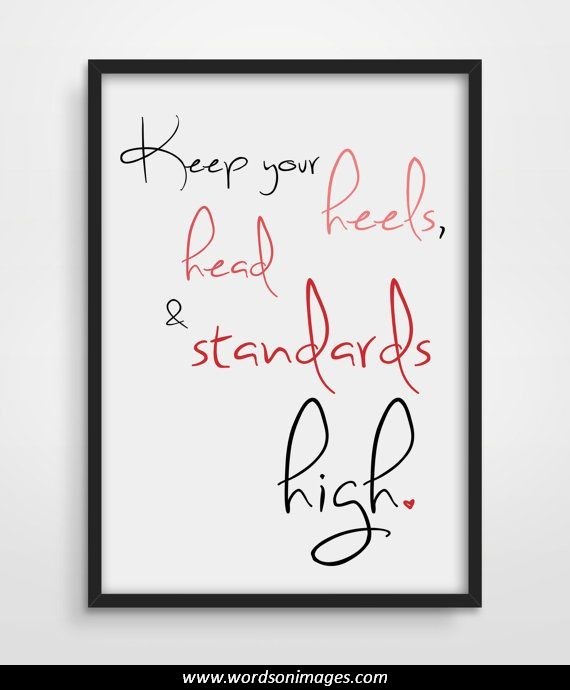 Keep your
heels,
head
&
standards
high.
www.wordsonimages.com